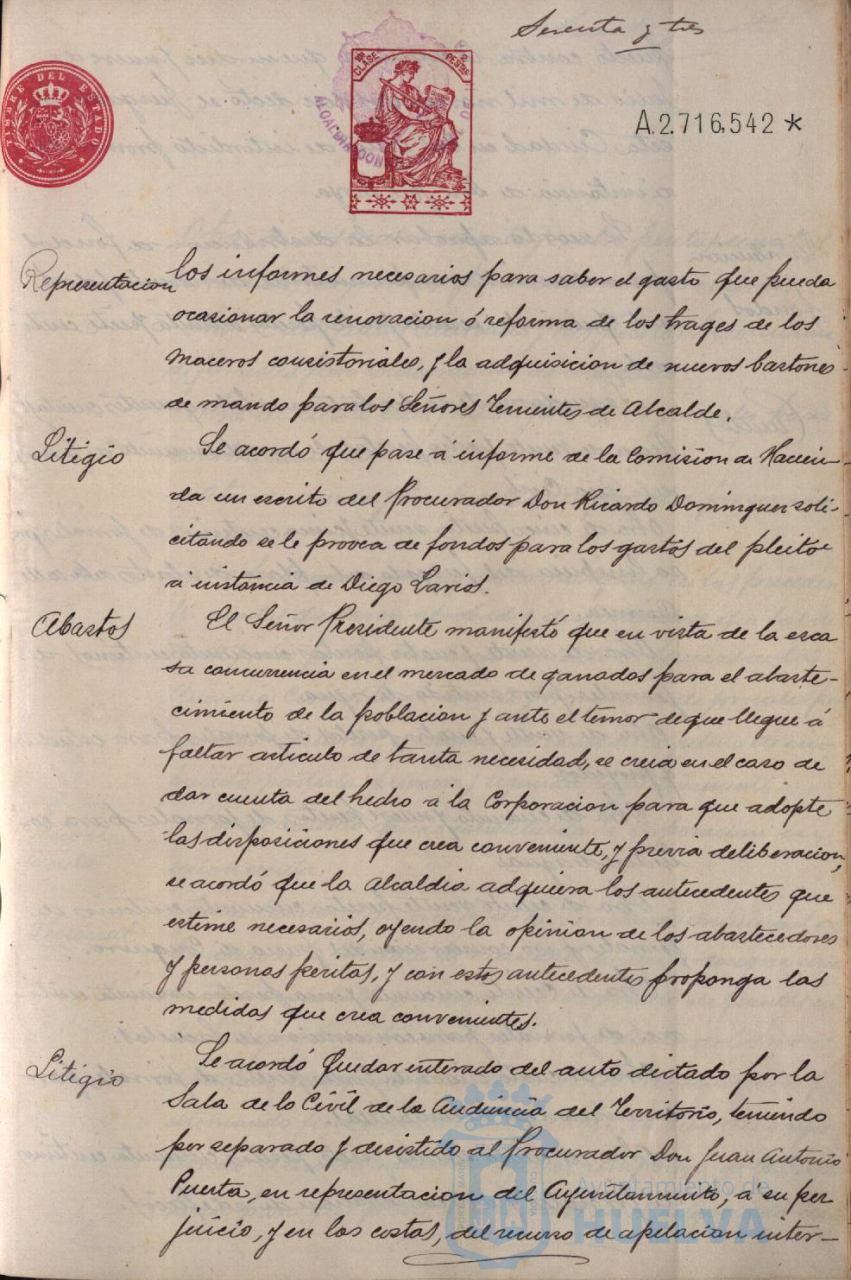 Sesenta y tres
TIMBRE DEL ESTADO
CLASE
PESETAS
A.2.716,542 *
Representacion
los informes necesarios para saber el gasto que pueda
ocasionar la renovacion ó reforma de los trages de los
maceros consistoriales, y la adquisicion de nuevos bastones
de mando para los Señores Tenientes de Alcalde.
Litigio
Se acordó que pase á informe de la Comision de Hacien-
da un escrito del Procurador Don Ricardo Dominguez soli-
citando se le provea de fondos para los gastos del pleito
á instancia de Diego
Abastos
El Señor Presidente manifestó que en vista de la esca
sa concurrencia en el mercado de ganados para el abaste-
cimiento de la poblacion y ante el temor de que llegue á
faltar articulo de tanta necesidad, se creia en el caso de
dar cuenta del hecho á la Corporacion para que adopte
las disposiciones que crea conveniente, y previa deliberacion,
se acordó que la Alcaldia adquiera los antecedentes que
estime necesarios, oyendo la opinion de los abastecedores
y personas peritas, y con estos antecedentes proponga las
medidas que crea convenientes.
Litigio
Se acordó quedar enterado del auto dictado por la
Sala de lo Civil de la Audiencia del Territorio, teniendo
por separado y desistido al Procurador Don Juan Antonio
Puerta, en representacion del Ayuntamiento, a su per
juicio, y en las costas, del recurso de apelacion inter-
Ayuntamiento de
HUELVA